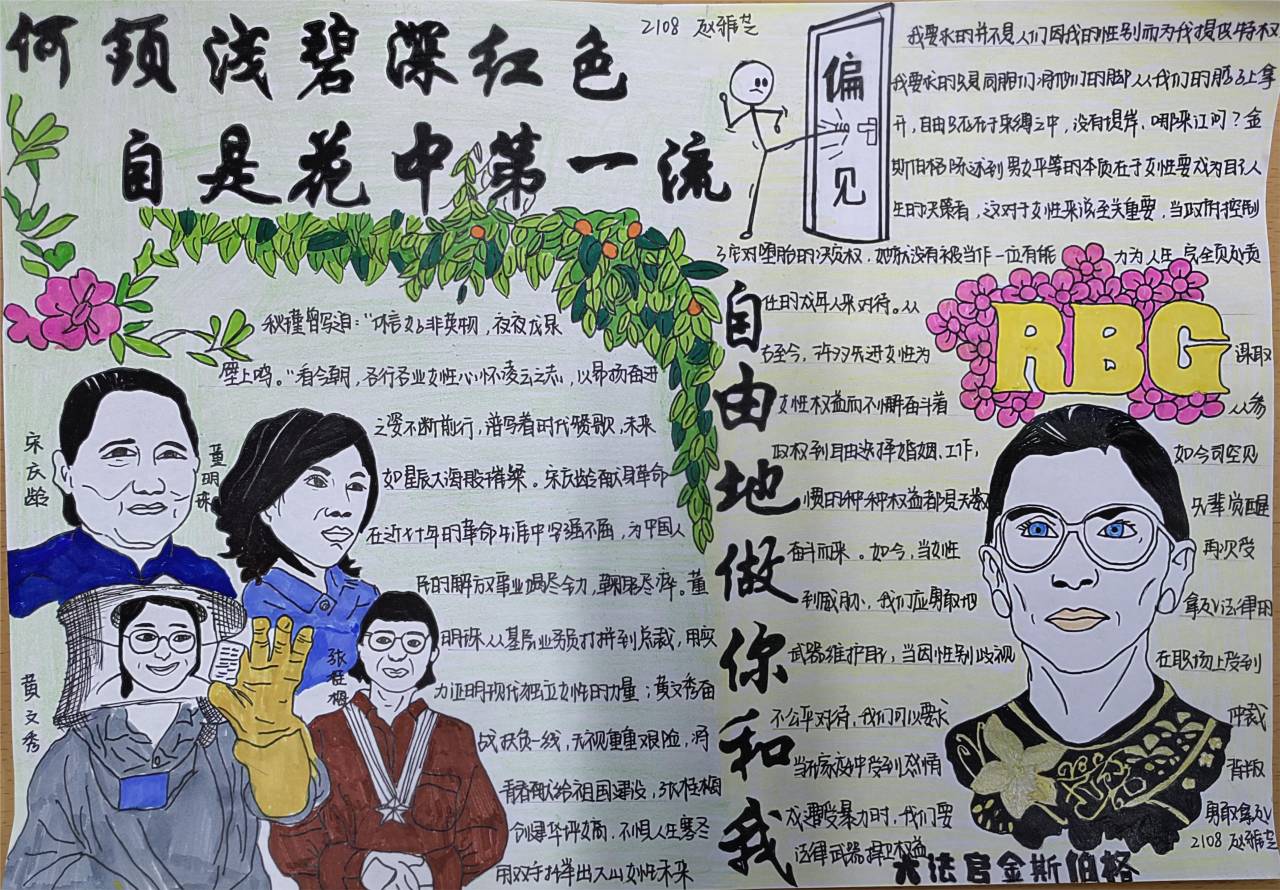 何须浅碧深红色
自是花中第一流
2108 赵雅芝
偏见
秋瑾曾写道:“休言女子非英物,夜夜龙泉
壁上鸣。”看今朝,各行各业女性心怀凌云之志,以昂扬奋进
之姿不断前行,谱写着时代赞歌,未来
如星辰大海般璀璨。宋庆龄献身革命
在近七十年的革命生涯中坚强不屈,为中国人
民的解放事业竭尽全力,鞠躬尽瘁。董
明珠从基层业务员打拼到总裁,用实
力证明现代独立女性的力量;黄文秀奋
战扶贫一线,无视重重艰险,将
青春献给祖国建设,张桂梅
创建华坪女高,不惧人生寒冬
用双手托举出大山女性未来
宋庆龄
董明珠
黄文秀
张桂梅
我要求的并不是人们因我的性别而为我提供特权
我要求的只是同胞们将他们的脚从我们的脖子上拿
开,自由不死于束缚之中,没有堤岸,哪来江河?金
斯伯格陈述到男女平等的本质在于女性要成为自己人
生的决策者,这对于女性来说至关重要,当政府控制
了它对堕胎的决质权,她就没有被当作一位有能 力为人生 完全负起责
任的成年人来对待。从
古至今,许多先进女性为 谋取
女性权益而不懈奋斗着 从参
政权到自由选择婚姻、工作, 如今司空见
惯的种种权益都是无数 先辈觉醒
奋斗而来。如今,当女性 再次受
到威胁,我们应勇敢地 拿起法律的
武器维护自己,当因性别歧视 在职场上受到
不公平对待,我们可以要求 仲裁
当在家庭中受到感情 背叛
或遭受暴力时,我们要 勇敢拿起
法律武器捍卫权益
RBG
自由地做你和我
2108 赵雅芝
大法官金斯伯格